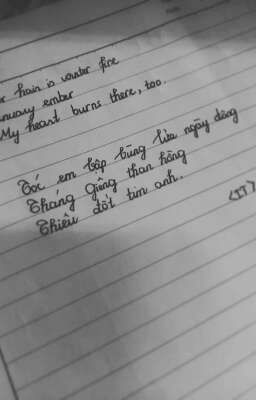 hair is winter fire
January ember
My heart burns there, too.
Tóc em bập bùng lửa ngày đông
Tháng giêng than hồng
Thiêu đốt tim anh.
(IT)